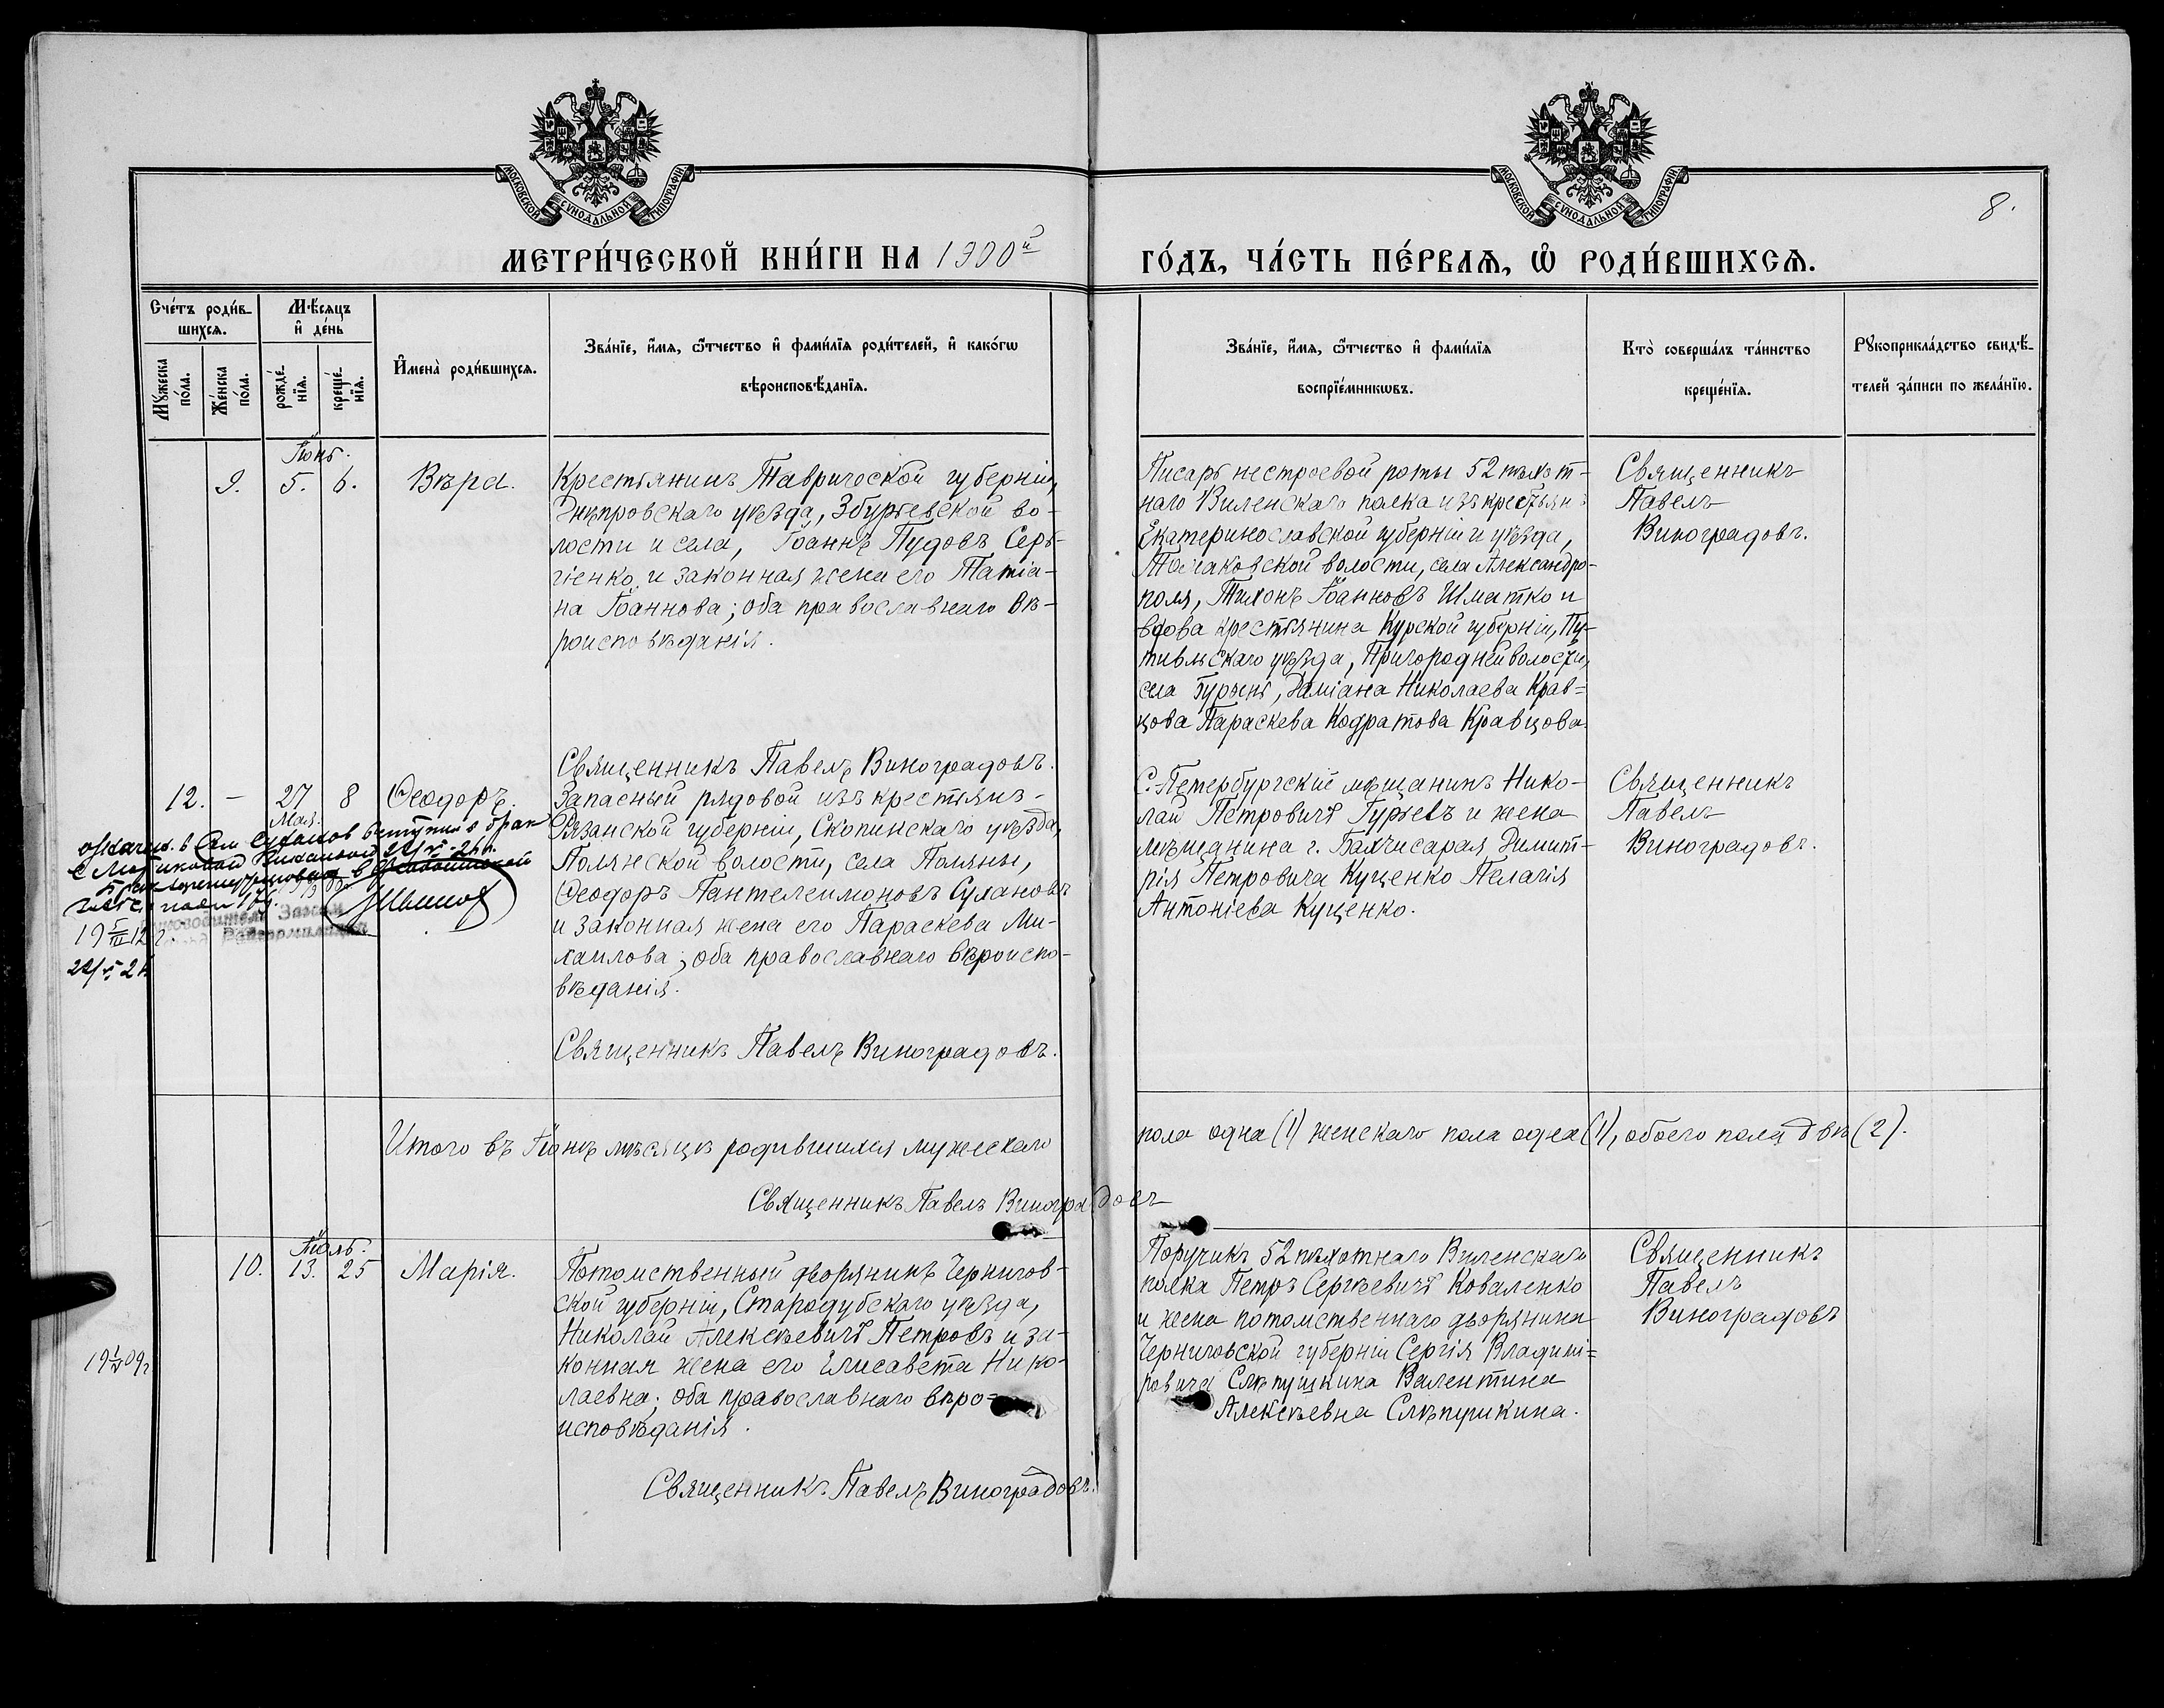 МОСКОВСКОЙ СѴНОДАЛЬНОЙ ТИПОГРАФІИ
МОСКОВСКОЙ СѴНОДАЛЬНОЙ ТИПОГРАФІИ
8.
МЕТРИ́ЧЕСКОЙ КНИ́ГИ НА 1900й ГО́ДЪ, ЧА́СТЬ ПЕ́РВАѦ, Ѡ҆ РОДИ́ВШИХСѦ.
Сче́тъ роди́в-
шихсѧ.
Мѣ́сѧцъ
и҆ де́нь
Мꙋ́жеска по́ла.
Же́нска по́ла.
рожде́-нїѧ.
креще́-нїѧ.
И҆мена̀ роди́вшихсѧ.
Зва́нїе, и҆́мѧ, ѻ҆́тчество и҆ фами́лїѧ роди́телей, и҆ како́гѡ
вѣроисповѣ́данїѧ.
Зва́нїе, и҆́мѧ, ѻ҆́тчество и҆ фами́лїѧ
воспрїе́мникѡвъ.
Кто̀ соверша́лъ та́инство
креще́нїѧ.
Рꙋкоприкла́дство свидѣ́-
телей за́писи по жела́нїю.
Іюнь.
9. 5. 6. Вѣра.
Крестьянинъ Таврической губерніи,
Днѣпровскаго уѣзда, Збурьевской во-
лости и села, Іоаннъ Пудовъ Серь-
гіенко и законная жена его Татіа-
на Іоаннова; оба православнаго вѣ-
роисповѣданія.
Священникъ Павелъ Виноградовъ.
Писарь нестроевой роты 52 пѣхот-
наго Виленскаго полка изъ крестьянъ
Екатеринославской губерніи и уѣзда,
волости, села Александро-
поля, Тихонъ Іоанновъ Шматко и
вдова крестьянина Курской губерніи, Пу-
тивльскаго уѣзда, Пригородней волости,
села Бурыни, Даміана Николаева Крав-
цова Параскева Кодратова Кравцова.
Священникъ
Павелъ
Виноградовъ.
12. - 27 8 Ѳеодоръ.
Мая.
Запасный рядовой изъ крестьянъ
Рязанской губерніи, Скопинскаго уѣзда,
Полянской волости, села Поляны,
Ѳеодоръ Пантелеимоновъ Сухановъ
и законная жена его Параскева Ми-
хаилова; оба православнаго вѣроиспо-
вѣданія.
Священникъ Павелъ Виноградовъ.
С.-Петербургскій мѣщанинъ Нико-
лай Петровичъ Гурьевъ и жена
мѣщанина г. Бахчисарая Димит-
рія Петровича Куценко Пелагія
Антоніева Куценко.
Священникъ
Павелъ
Виноградовъ.
Суханов вступил в брак
19 5/III 12 г.
Итого въ Іюнѣ мѣсяцѣ родившихся мужескаго пола одна (1) женскаго пола одна (1), обоего пола двѣ (2).
Священникъ Павелъ Виноградовъ
Іюль.
10. 13. 25 Марія.
Потомственный дворянинъ Чернигов-
ской губерніи, Стародубскаго уѣзда,
Николай Алексѣевичъ Петровъ и за-
конная жена его Елисавета Нико-
лаевна; оба православнаго вѣро-
исповѣданія.
Священникъ Павелъ Виноградовъ.
Поручикъ 52 пѣхотнаго Виленскаго
полка Петръ Сергѣевичъ Коваленко
и жена потомственнаго дворянина
Черниговской губерніи Сергія Владимі-
ровича Слѣпушкина Валентина
Алексѣевна Слѣпушкина.
Священникъ
Павелъ
Виноградовъ